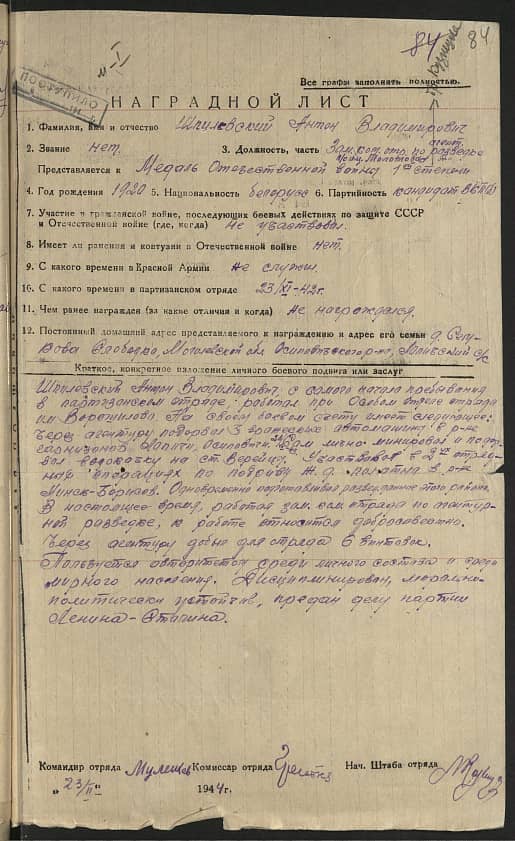 84 84
Все графы заполнять полностью.
ПОСТУПИЛО
НАГРАДНОЙ ЛИСТ
1. Фамилия, имя и отчество Шпилевский Антон Владимирович
2. Звание нет. 3. Должность, часть Зам. ком. отр. по агент. разведке
Представляется к Медаль Отечественной войны 1ой степени
4. Год рождения 1920 5. Национальность белорус 6. Партийность кандидат ВКП(б)
7. Участие в гражданской войне, последующих боевых действиях по защите СССР
и Отечественной войне (где, когда) Не участвовал.
8. Имеет ли ранения и контузии в Отечественной войне нет.
9. С какого времени в Красной Армии Не служил.
10. С какого времени в партизанском отряде 23/XI-42г.
11. Чем ранее награжден (за какие отличия и когда) Не награждался.
12. Постоянный домашний адрес представляемого к награждению и адрес его семьи д.
Слободка, Могилевской обл Осиповичского р-на,
Краткое, конкретное изложение личного боевого подвига или заслуг
Шпилевский Антон Владимирович, с самого начала пребывания
в партизанском отряде, работал при Особом отделе отряда
им Ворошилова. На своем боевом счету имеет следующее:
Через агентуру подорвал 3 вражеских автомашины в р-не
гарнизонов Лапичи, Осиповичи. Сам лично минировал и подор-
вал водокачку на ст. Верейцы. Участвовал в 2х отряд-
ных операциях по подрыву ж.д. полотна в р-не
Минск-Борисов. Одновременно доставлял разведданные этого района.
В настоящее время, работая зам. ком отряда по агентур-
ной разведке, к работе относится добросовестно.
Через агентуру добыл для отряда 6 винтовок.
Пользуется авторитетом среди личного состава и среди
мирного населения. Дисциплинирован, морально-
политически устойчив, предан делу партии
Ленина-Сталина.
Командир отряда Комиссар отряда Нач. Штаба отряда
„23/II" 1944г.